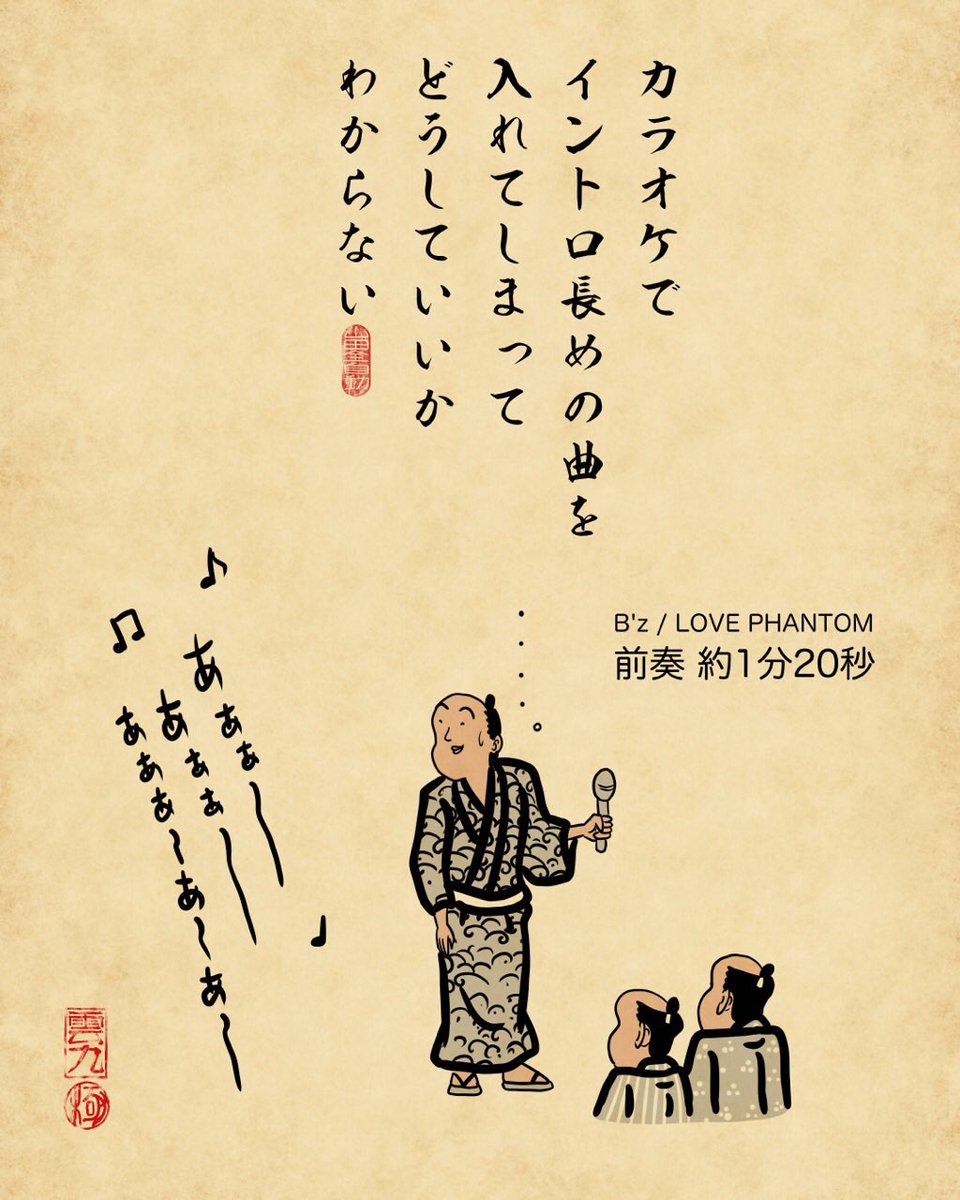 カラオケで
イントロ長めの曲を
入れてしまって
どうしていいか
わからない
B'z / LOVE PHANTOM
前奏 約1分20秒
あぁぁ〜
あぁぁ〜
あぁぁ〜あ〜あ〜